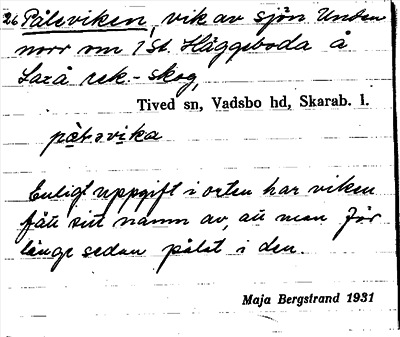 26 Pålsviken, vik av sjön Unden
norr om 1 St. Häggeboda å
Laxå rek.-skog,
Tived sn, Vadsbo hd, Skarab. l.
på̀lsvika
Enligt uppgift i orten har viken
fått sitt namn av, att man för
länge sedan pålat i den.
Maja Bergstrand 1931